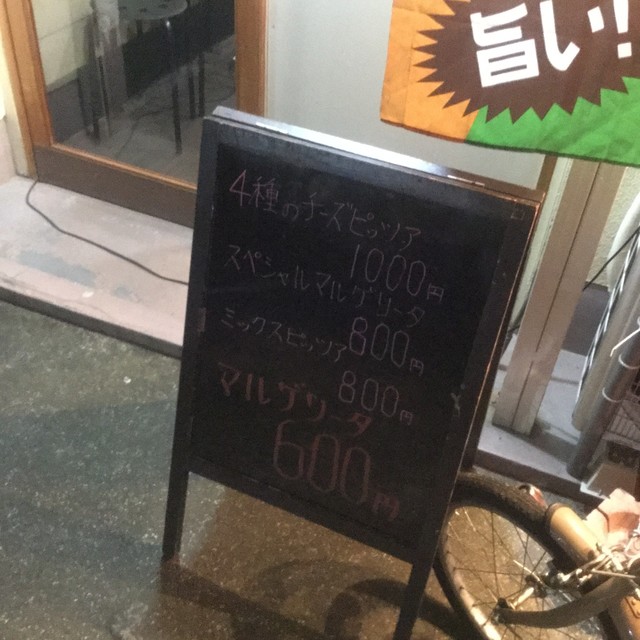 旨い!
4種のチーズピッツア
1000円
スペシャルマルゲリータ
800円
ミックスピッツア
800円
マルゲリータ
600円